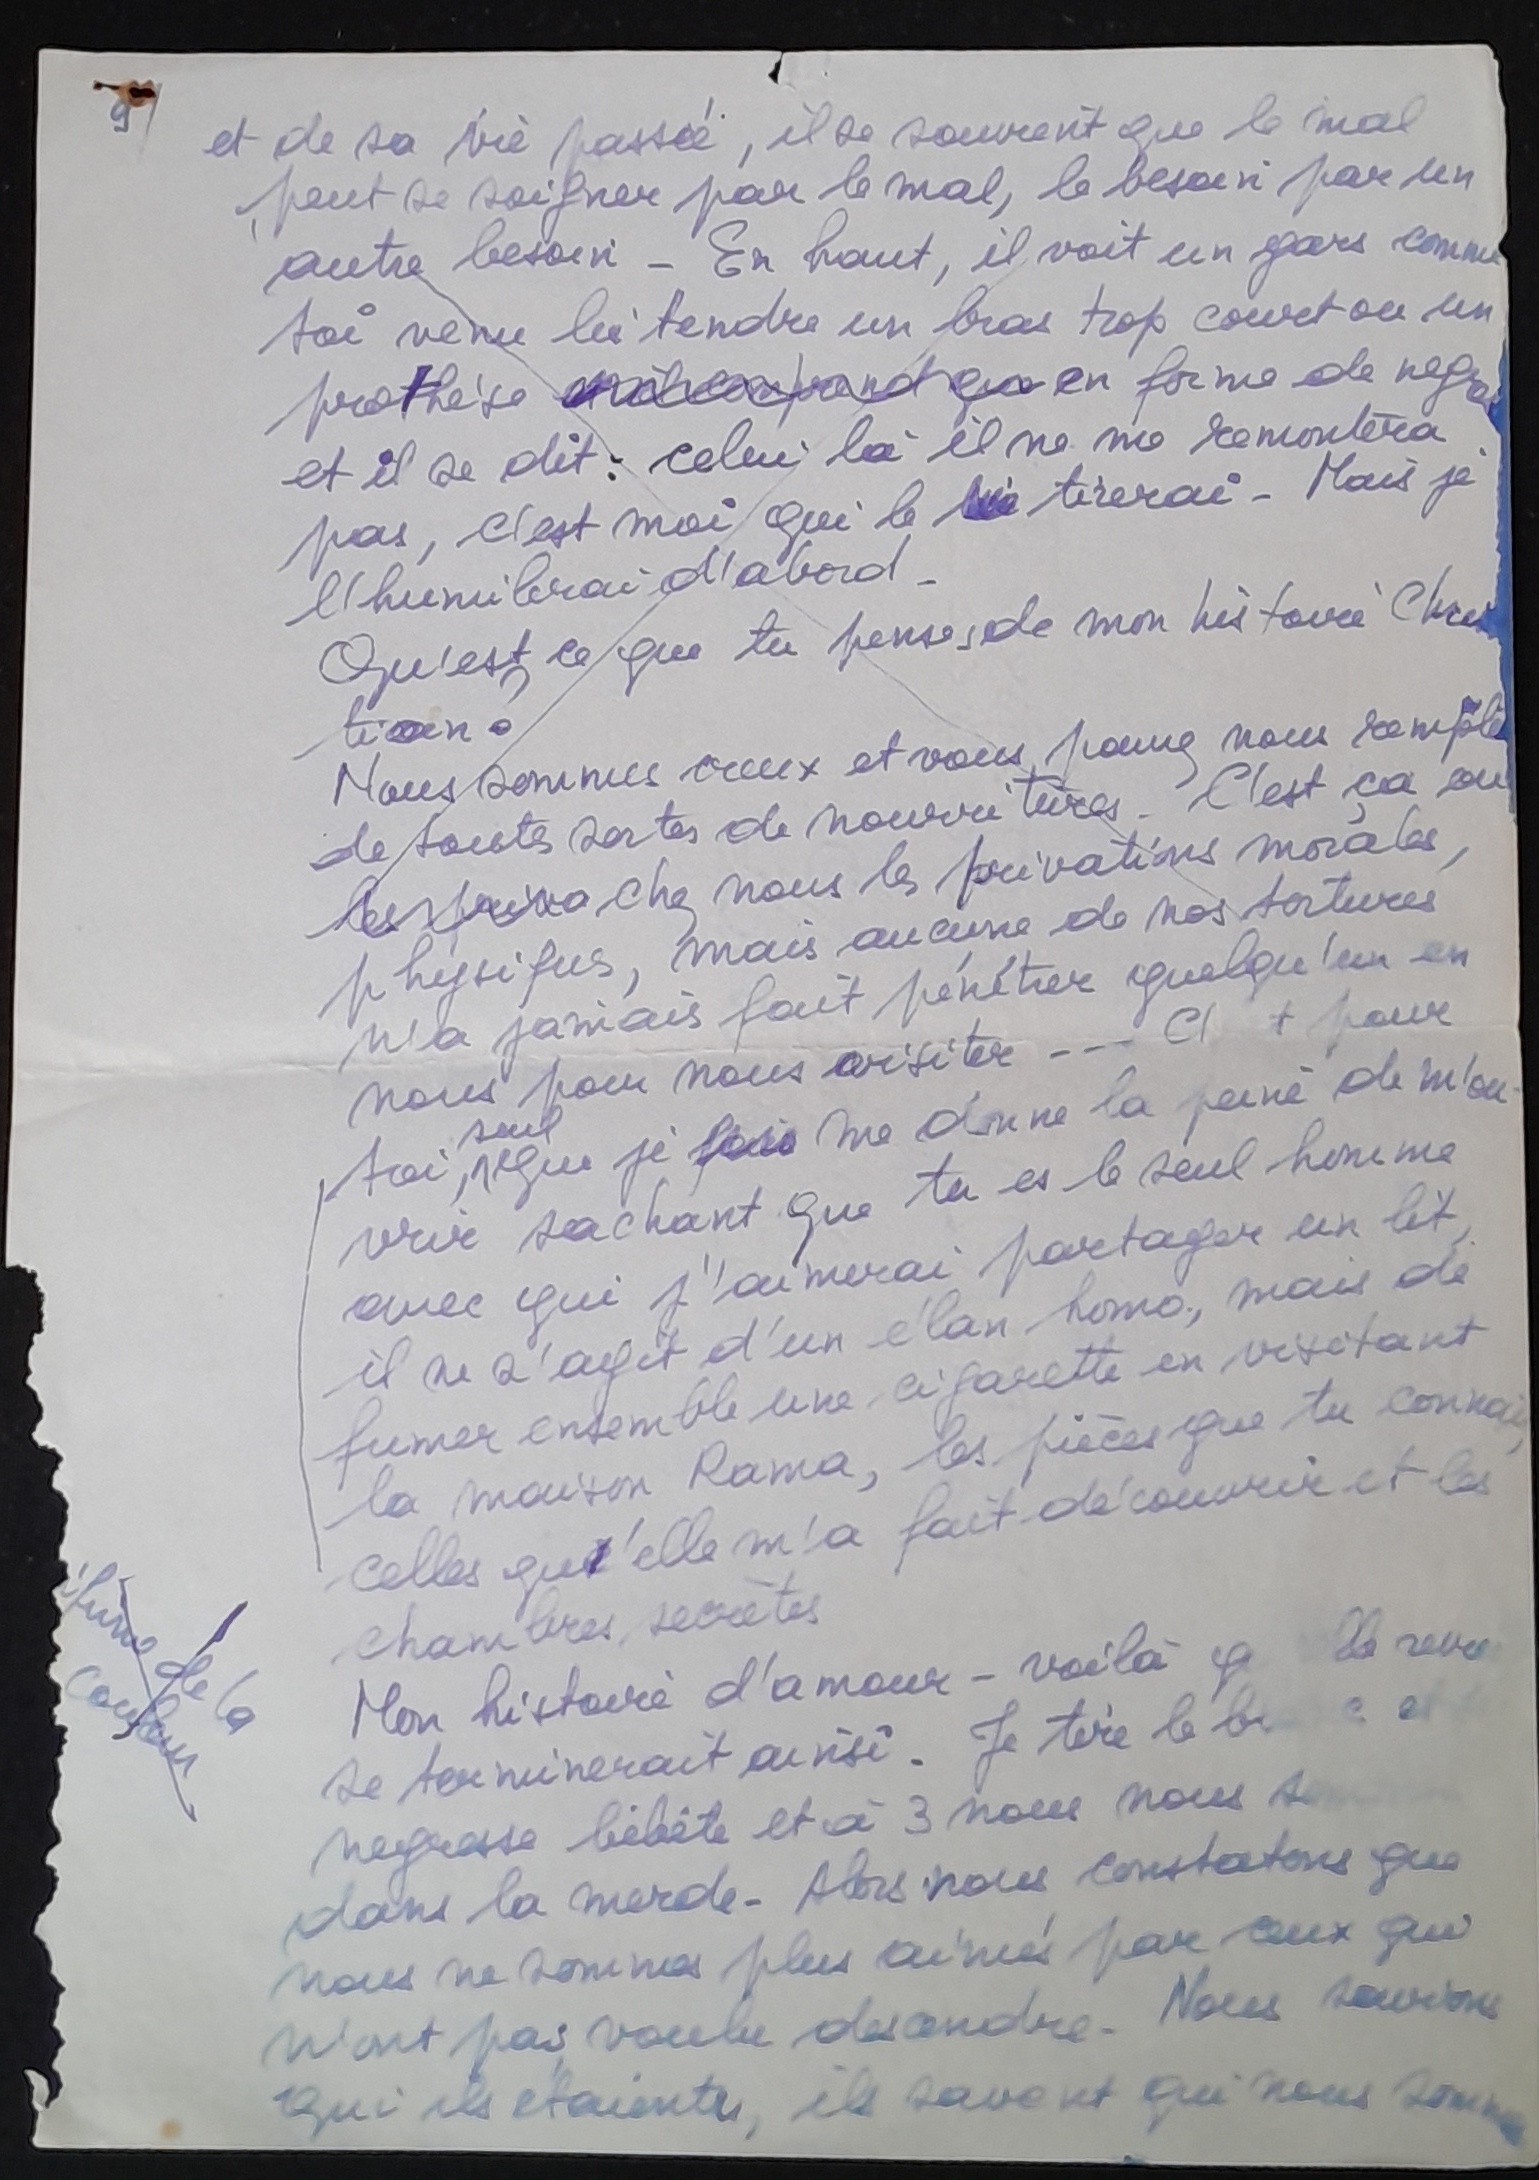 9/
et de sa vie passée, il se souvient que le mal
peut se soigner par le mal, le besoin par un
autre besoin - En haut, il voit un gars comme
toi venu lui tendre un bras trop court ou un
prothèse en forme de negre
et il se dit : celui là il ne me remontera
pas, c'est moi qui le tirerai - Mais je
l'humilierai d'abord -
Qu'est ce que tu penses de mon histoire Chris
tian ?
Nous sommes creux et vous pouvez nous remplir
de toutes sortes de nourritures - C'est ça ou
chez nous les privations morales,
physiques, mais aucune de nos tortures
n'a jamais fait pénétrer quelqu'un en
nous pour nous visiter --- pour
toi, seul que je me donne la peine de m'ou-
vrir sachant que tu es le seul homme
avec qui j'aimerai partager un lit,
il ne s'agit d'un élan homo, mais de
fumer ensemble une cigarette en visitant
la maison Rama, les pièces que tu connais,
celles qu'elle m'a fait découvrir et les
chambres secrètes
de la
couleur
Mon histoire d'amour - voilà
se terminerait ainsi - Je tire le
negresse bébête et à 3 nous nous
dans la merde - Alors nous constatons que
nous ne sommes plus aimés par ceux qui
n'ont pas voulu descendre - Nous savions
qui ils étaient, ils savent qui nous sommes